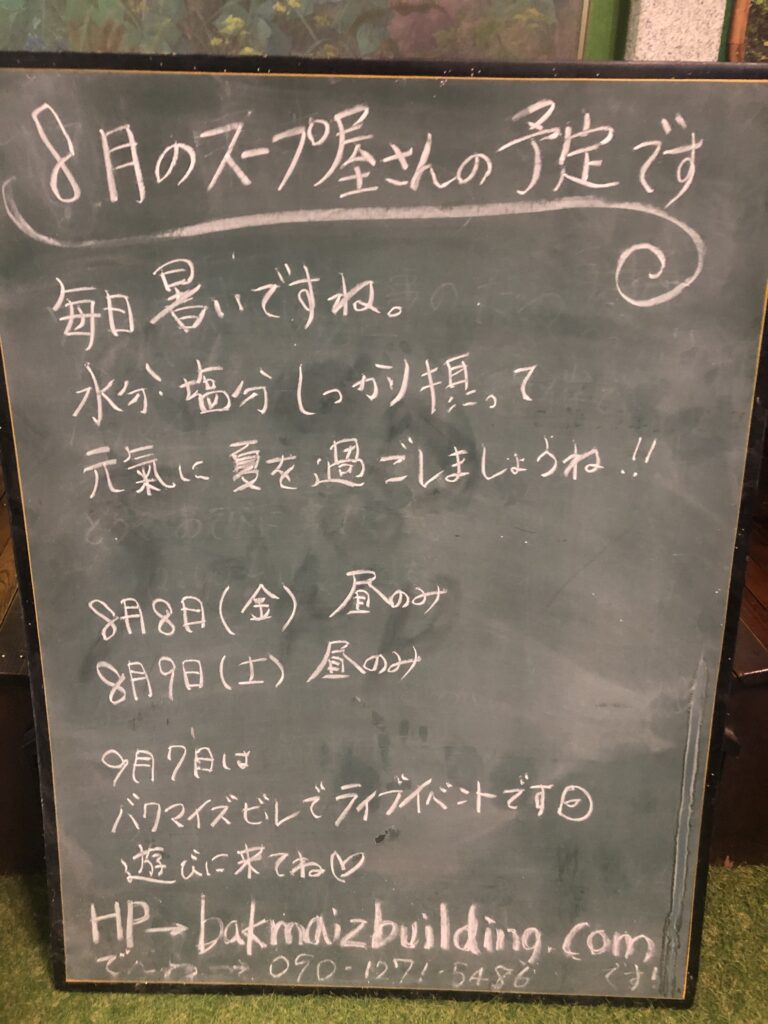 8月のスープ屋さんの予定です
毎日暑いですね。
水分・塩分しっかり摂って
元氣に夏を過ごしましょうね!!
8月8日(金) 昼のみ
8月9日(土) 昼のみ
9月7日は
バクマイズビルでライブイベントです
遊びに来てね♡
HP→bakmaizbuilding.com
→ 090-1271-5486 です!